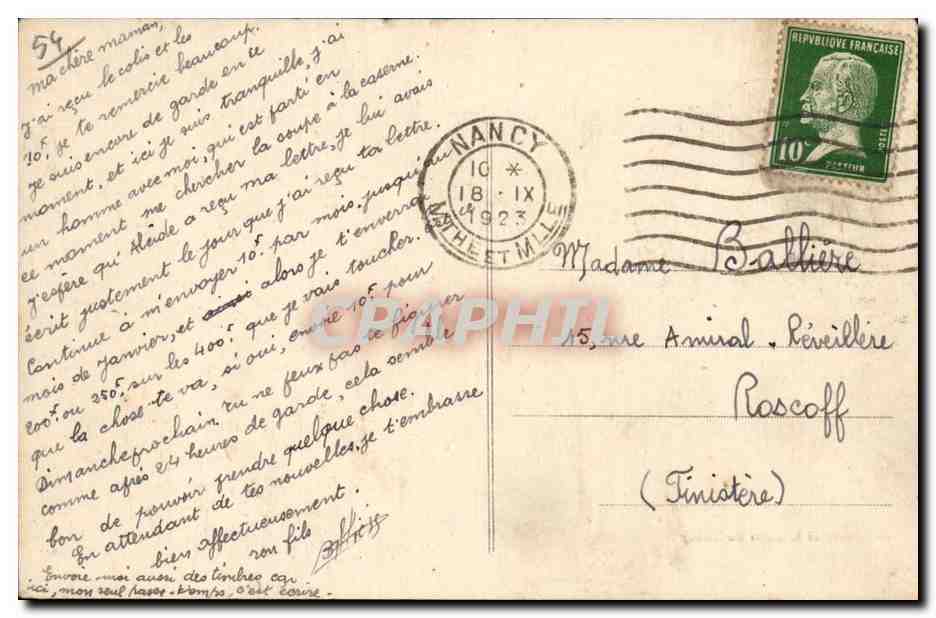 54
ma chère maman,
j'ai reçu le colis et les
10F. je te remercie beaucoup.
je suis encore de garde en ce
moment, et ici je suis tranquille, j'ai
un homme avec moi, qui est parti en
ce moment me chercher la soupe à la caserne.
j'espère qu'Alcide a reçu ma lettre, je lui avais
écrit justement le jour que j'ai reçu ta lettre.
Continue à m'envoyer 10F. par mois jusqu'au
mois de Janvier, et alors je t'enverrai
200F. ou 250F. sur les 400F. que je vais toucher.
que la chose te va, si oui, envoie 10F. pour
Dimanche prochain. Tu ne peux pas te figurer
comme après 24 heures de garde, cela semble
bon de pouvoir prendre quelque chose.
En attendant de tes nouvelles, je t'embrasse
bien affectueusement.
ton fils
Envoie-moi aussi des timbres car
ici, mon seul passe-temps, c'est écrire.
NANCY
10 *
18 - IX
1923
MTHE ET MLLE
REPVBLIQUE FRANÇAISE
POSTES
10c
PASTEUR
Madame Ballière
15, rue Amiral Réveillère
Roscoff
(Finistère)
CPAPHIL